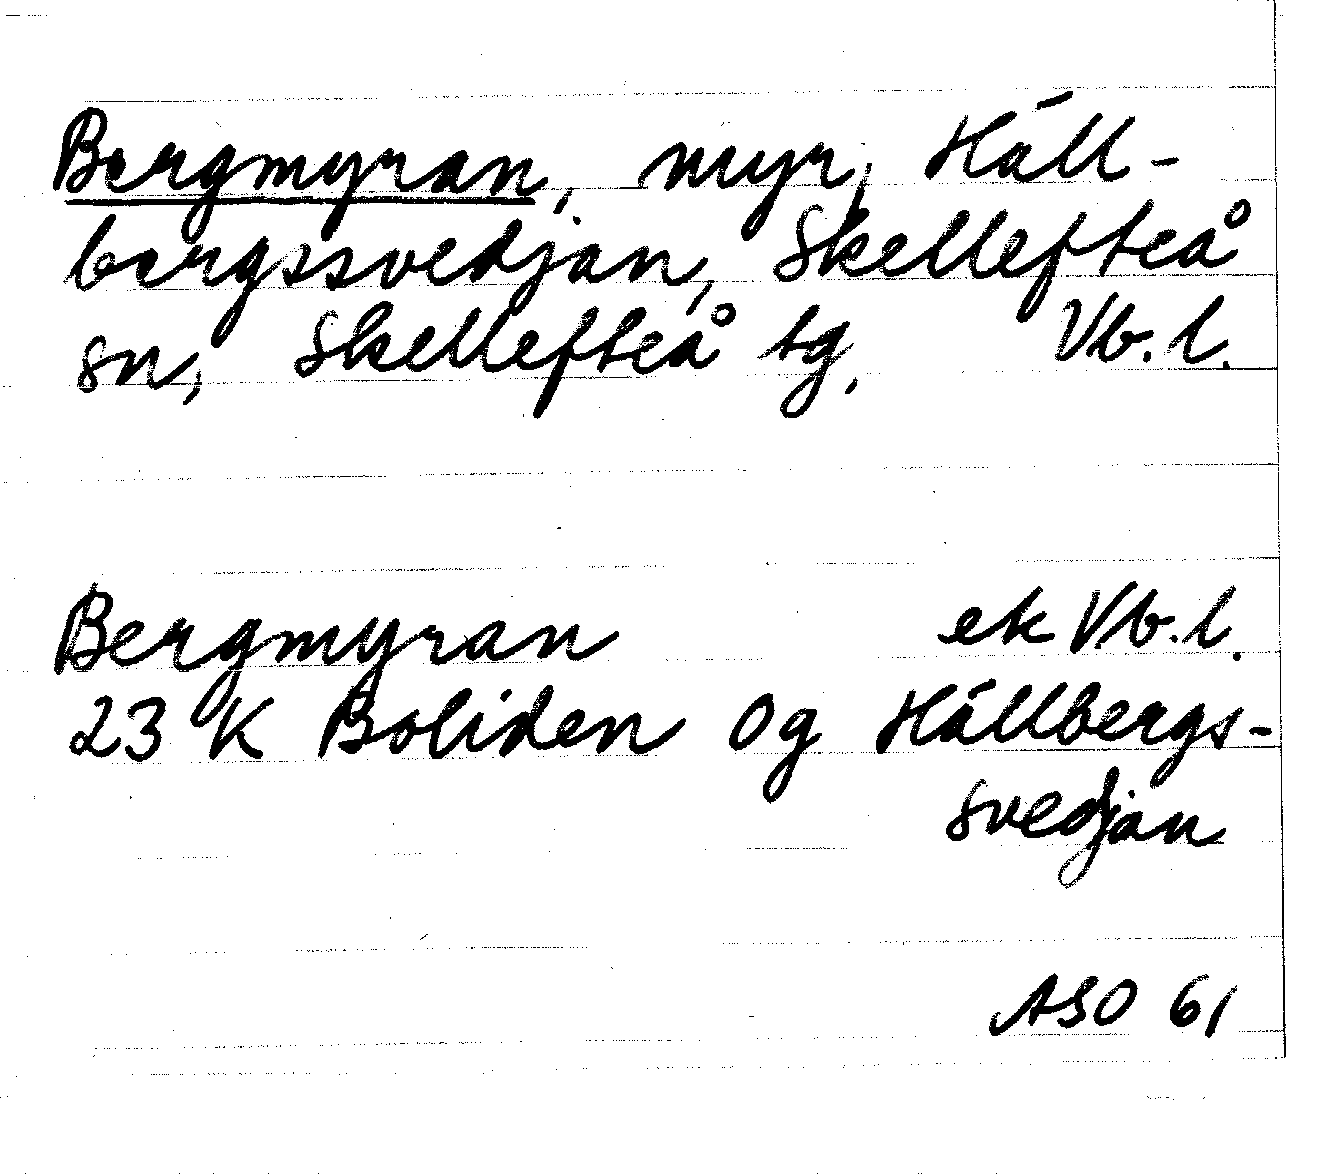 Bergmyran, myr, Häll-
bergssvedjan, Skellefteå
sn, Skellefteå tg, Vb.l.
Bergmyran ek Vb.l.
23 K Boliden Og Hällbergs-
svedjan
ASO 61